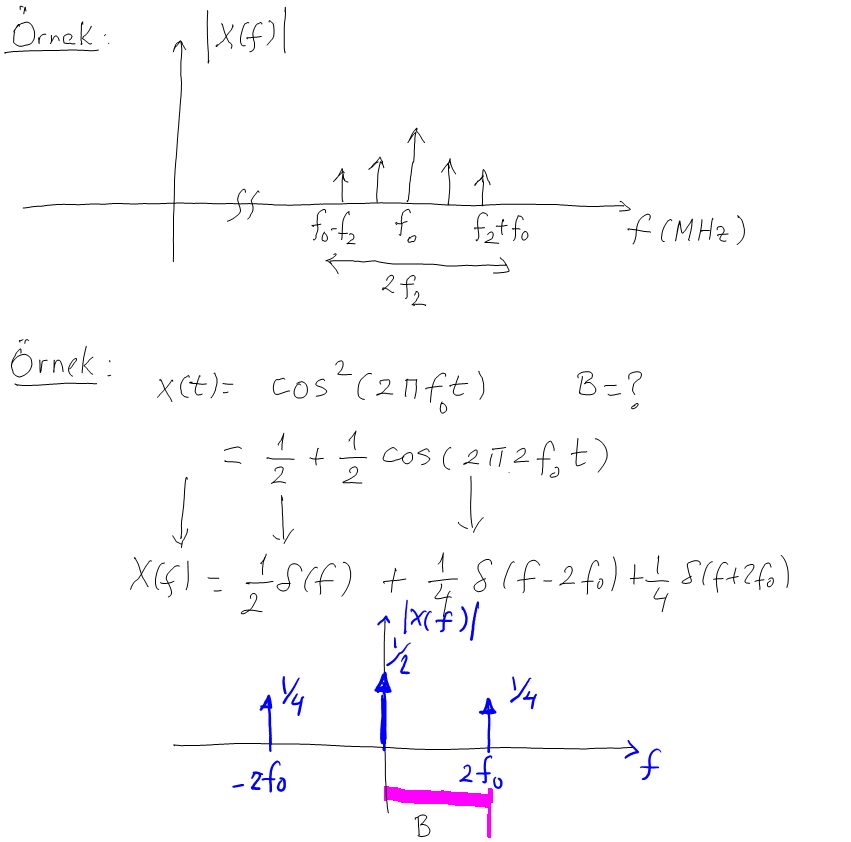 Örnek:
|X(f)|
f₀-f₂ f₀ f₂+f₀
f(MHz)
2f₂
Örnek:
x(t)= cos²(2πf₀t) B=?
= 1/2 + 1/2 cos(2π2f₀t)
X(f) = 1/2 δ(f) + 1/4 δ(f-2f₀) + 1/4 δ(f+2f₀)
|X(f)|
1/2
1/4 1/4
-2f₀ 2f₀ f
B